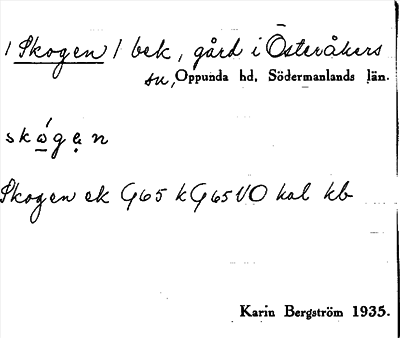 / Skogen / bek, gård i Österåkers
sn, Oppunda hd, Södermanlands län.
skógen
Skogen ek G65 kG65VO kal kb
Karin Bergström 1935.